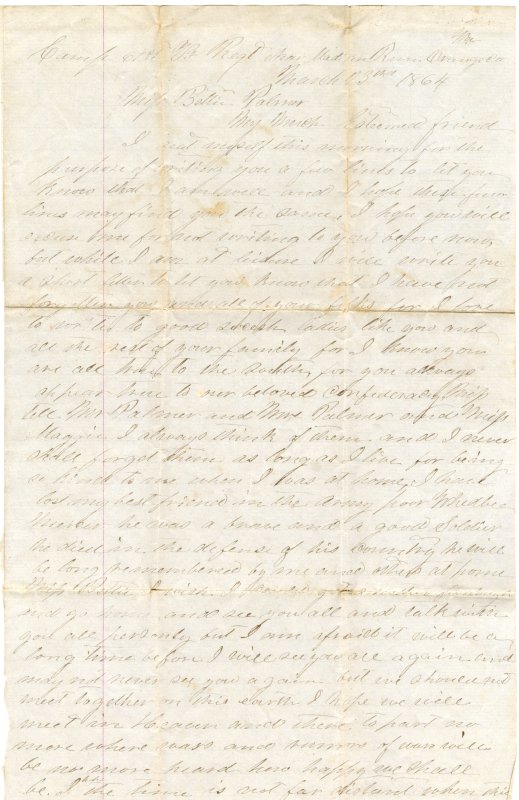 Camp Regt Near Madison Run Orange Co
Va
March 3rd 1864
Miss Bettie Palmer
My Much Esteemed friend
I seat myself this morning for the
purpose of writing you a few lines to let you
know that I am well and I hope these few
lines may find you the same. I hope you will
excuse me for not writing to you before now
but while I am at leisure I will write you
a short letter to let you know that I have not
forgotten you and all of your folks for I love
to write to good Southern ladies like you and
all the rest of your family for I know you
are all true to the South, for you always
appear true to our beloved Confederacy, Miss
tell Mr Palmer and Mrs Palmer and Miss
Maggie I always think of them and I never
shall forget them as long as I live for being
so kind to me when I was at home, I have
lost my best friend in the army poor
he was a brave and a good Soldier
he died in the defense of his country he will
be long remembered by me and others at home
Miss Bettie I wish I could get
and go home and see you all and talk with
you all personly but I am afraid it will be a
long time before I will see you all again and
may not never see you again but we should not
meet together on this earth I hope we will
meet in Heaven and there to part no
more where wars and rumors of wars will
be no more heard how happy we shall
be. I the time is not far distant when this